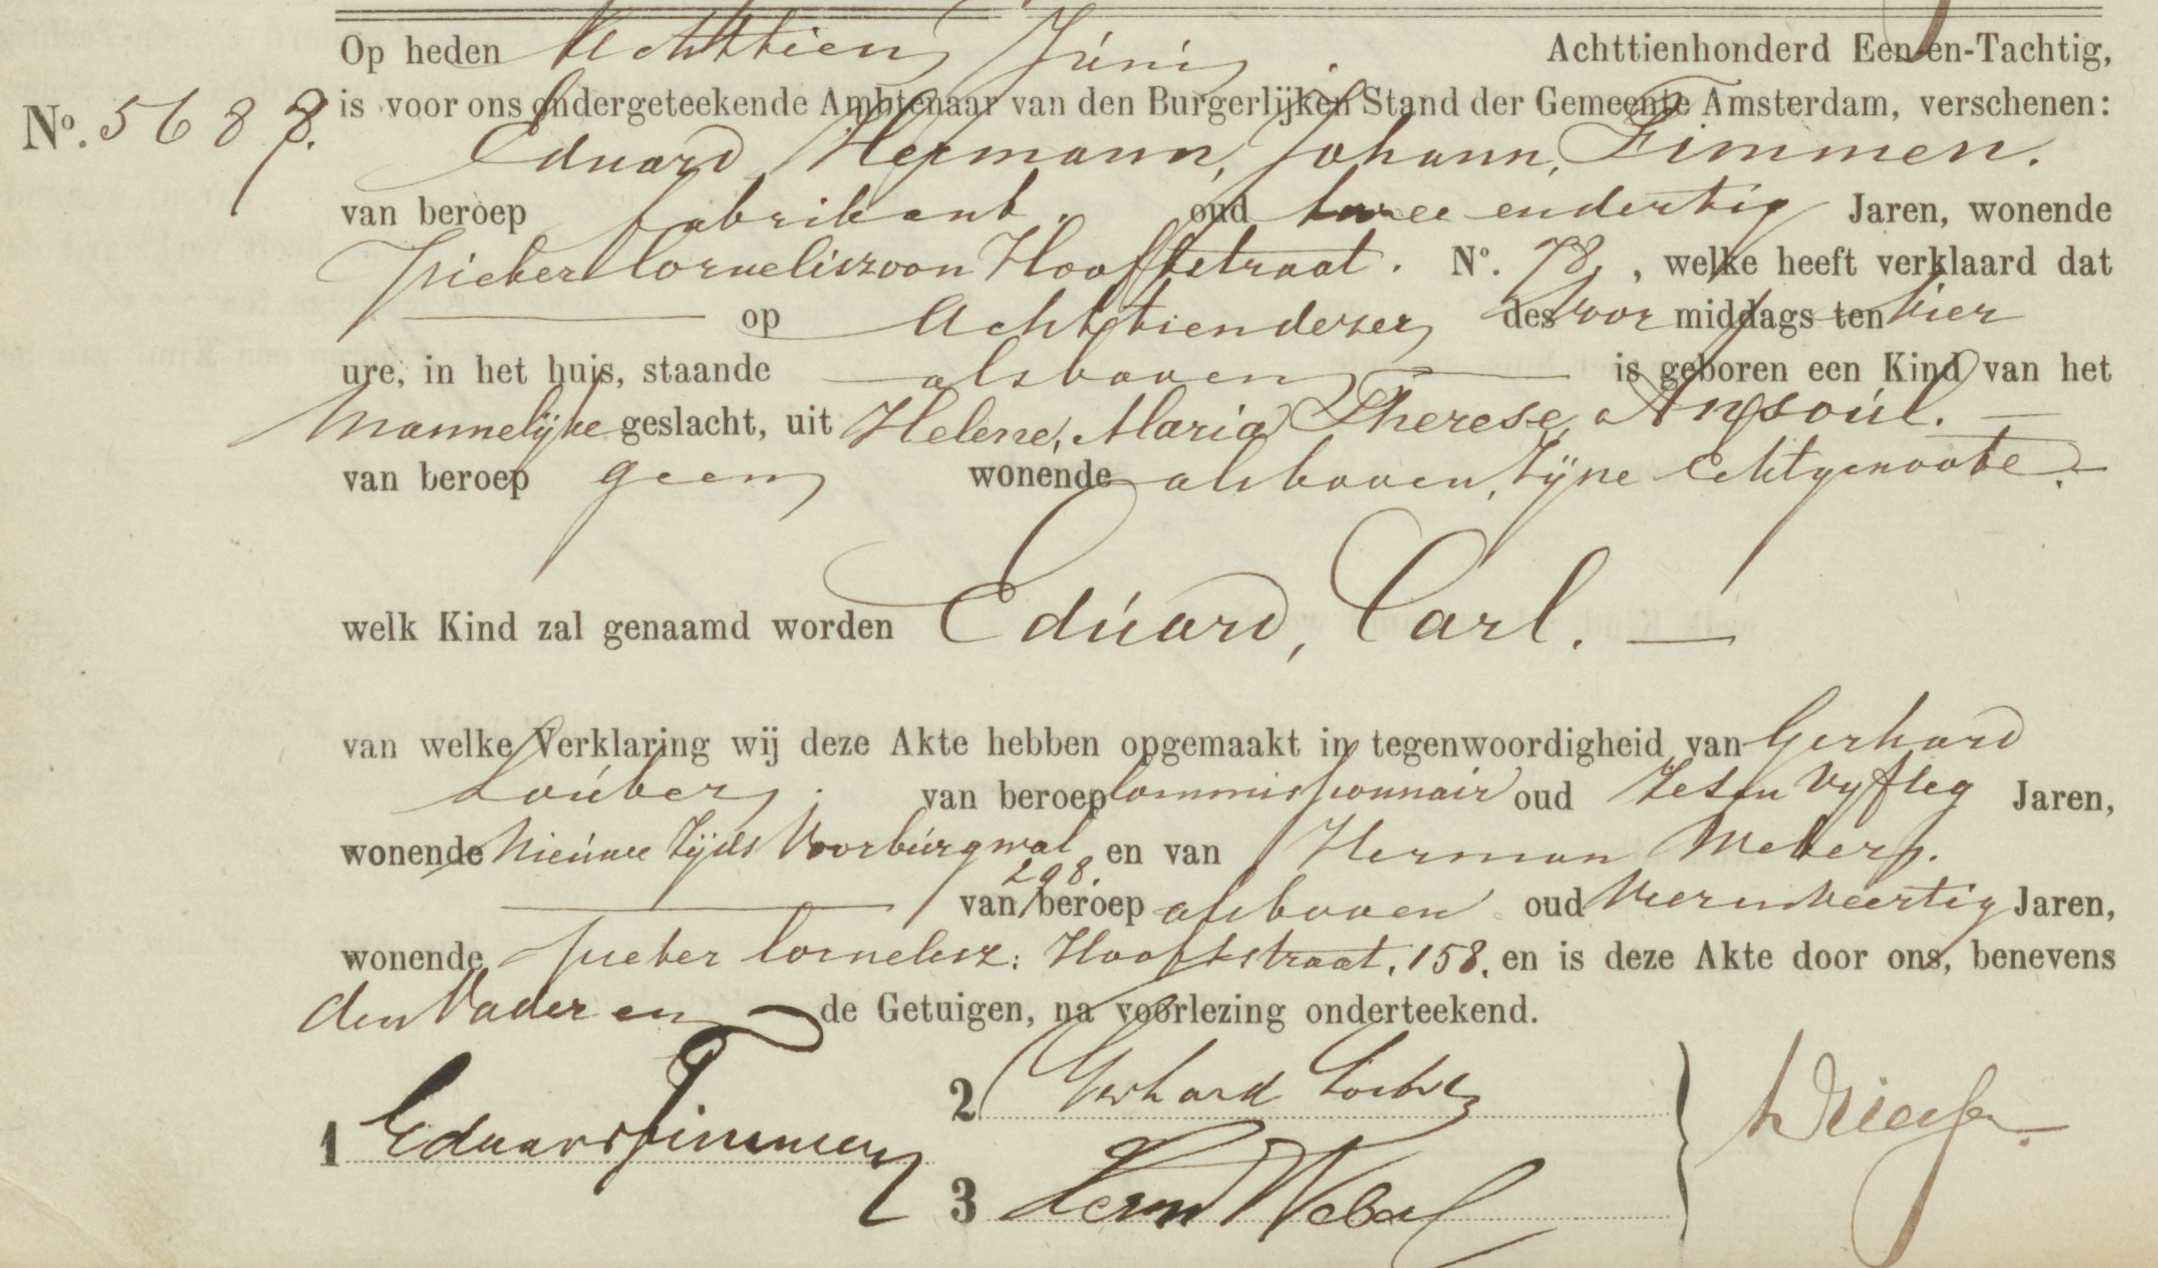 Op heden Achttien Júnij Achttienhonderd Een-en-Tachtig,
No. 5688. is voor ons ondergeteekende Ambtenaar van den Burgerlijken Stand der Gemeente Amsterdam, verschenen:
Eduard, Hermann, Johann, Fimmen.
van beroep fabrikant. oud twee endertig Jaren, wonende
Pieter Corneliszoon Hooftstraat. No. 78, welke heeft verklaard dat
op Achttiendezer des voor middags ten vier
ure, in het huis, staande alsboven is geboren een Kind van het
Mannelijke geslacht, uit Helene, Maria Therese, Ansoúl.
van beroep geen wonende alsboven, Zijne Echtgenoote.
welk Kind zal genaamd worden Edúard, Carl.
van welke Verklaring wij deze Akte hebben opgemaakt in tegenwoordigheid van Gerhard
van beroep Commissionnair oud Zesen Vyfteg Jaren,
wonende Nieúwe Zijds Voorbúrgwal 298. en van Herman
van beroep alsboven oud Vierenveertig Jaren,
wonende Pieter Cornelisz: Hooftstraat. 158. en is deze Akte door ons, benevens
den Vader en de Getuigen, na voorlezing onderteekend.
1 Eduard Fimmen
2 Gerhard
3 Herm Weber